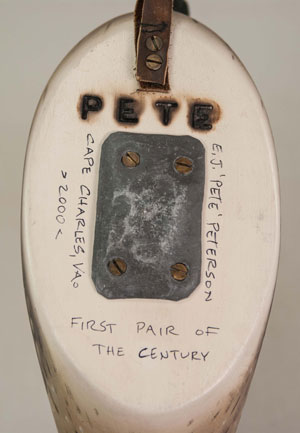 PETE
E.J. 'PETE' PETERSON
CAPE CHARLES, VA.
> 2000 <
FIRST PAIR OF
THE CENTURY